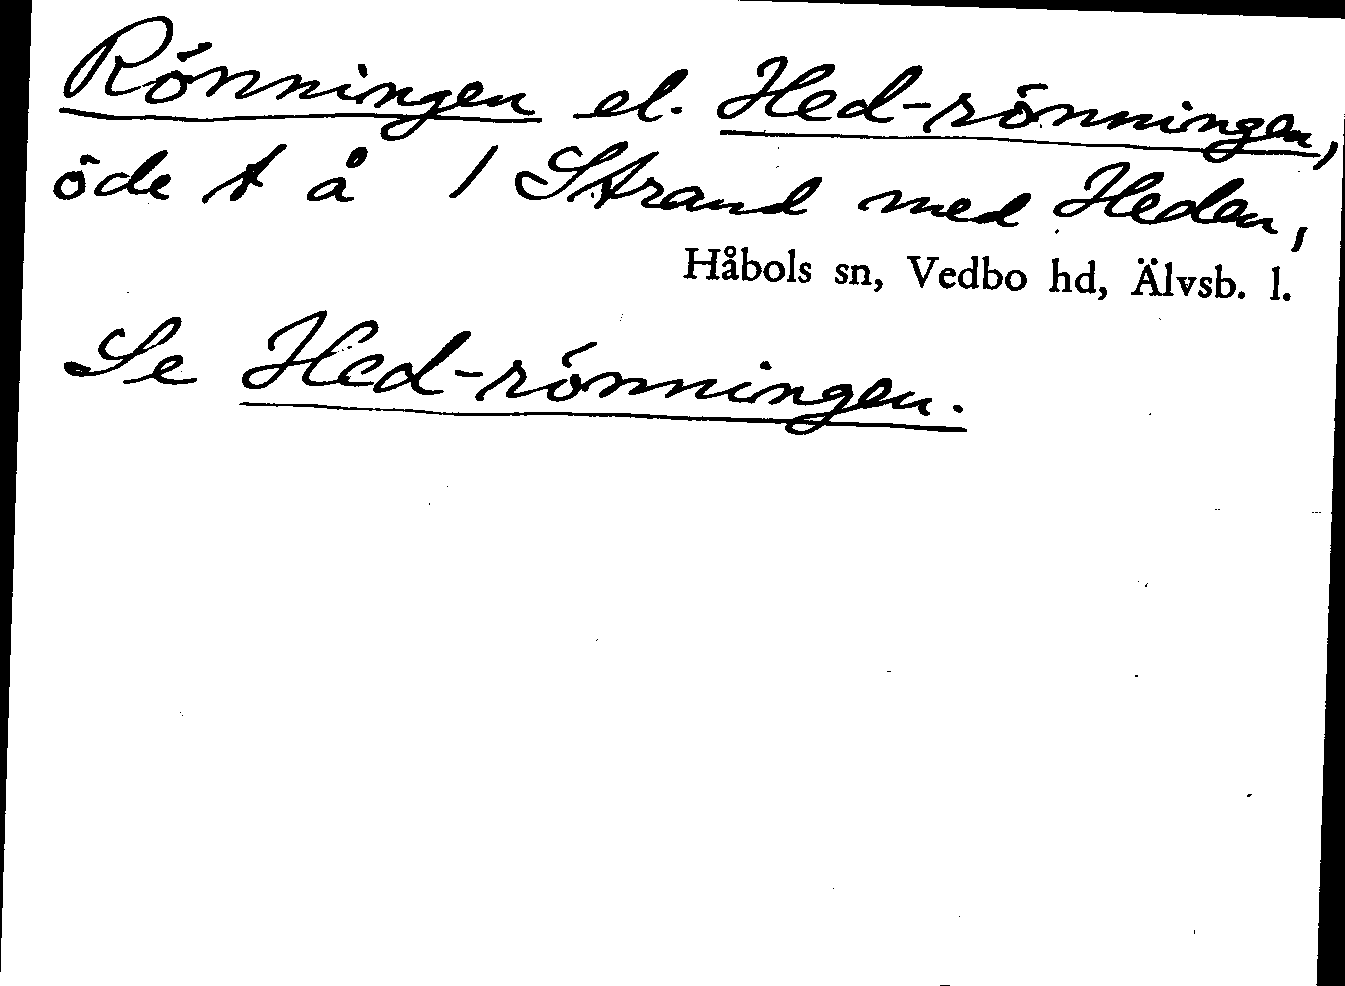 Rönningen el. Hed-rönningen,
öde t å 1 Strand med Heden,
Håbols sn, Vedbo hd, Älvsb. l.
Se Hed-rönningen.